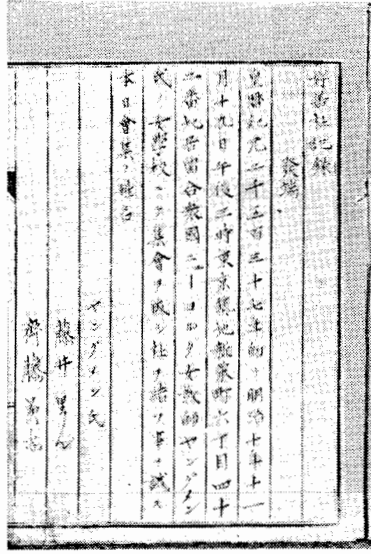 好善社記錄
發端
皇曆紀元二千五百三十七年即明治十年十一
月十九日午後二時東京築地新榮町六丁目四十
二番地寄留合衆國ニーヨルク女教師ヤングメン
氏ノ女學校ニテ集會ヲ成シ社ヲ結ブ事ヲ試ム
本日會集ノ姓名
ヤングメン氏
藤井
齊藤